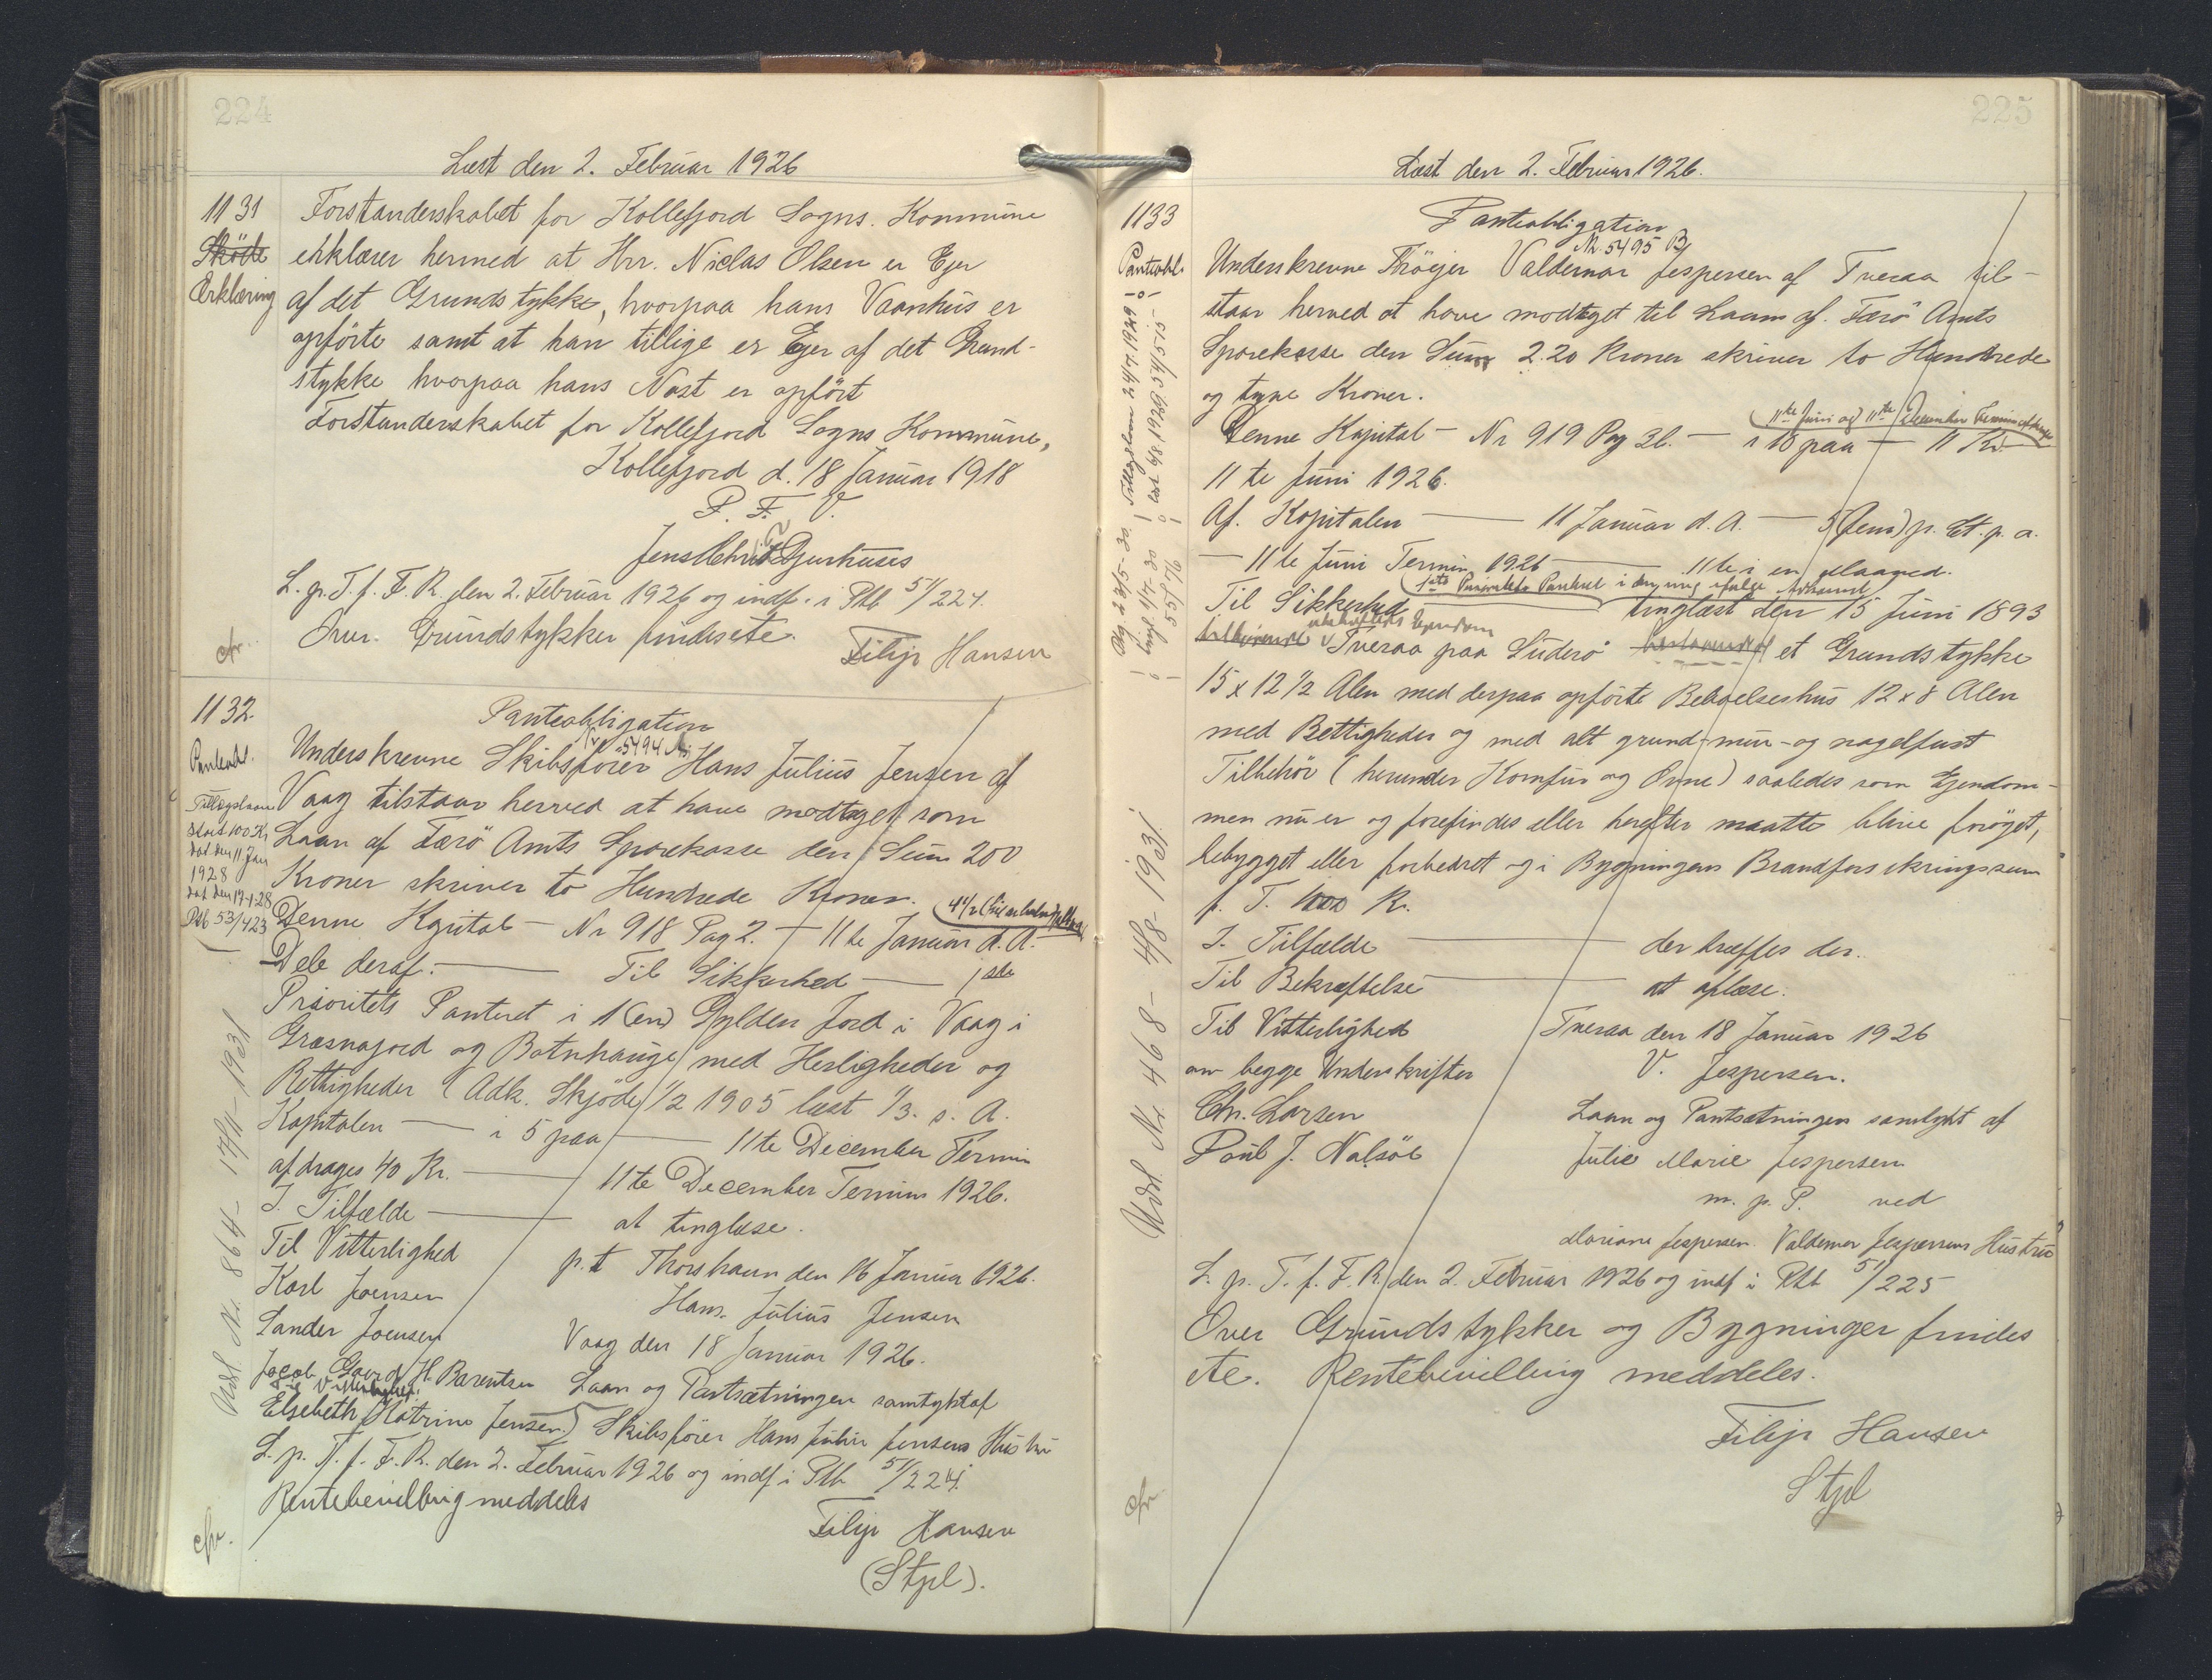 224
Læst den 2. Februar 1926
1131
Skøde
Erklæring
Forstanderskabet for Kollefjord Sogns. Kommune
erklærer hermed at Hrr. Niclas Olsen er Ejer
af det Grundstykke, hvorpaa hans Vaanhus er
opførte samt at han tillige er Ejer af det Grund-
stykke hvorpaa hans Nøst er opført
Forstanderskabet for Kollefjord Sogns Kommune,
Kollefjord d. 18 Januar 1918
P. F. V.
Jens Chr. Djurhuus
L. p. T. f. F. R. den 2. Februar 1926 og indf. i Ptb 51/224.
Over Grundstykker findes ete.
Filip Hansen
cfr.
1132.
Panteobl.
Panteobligation
Nr 5494 A
Underskrevne Skibsfører Hans Julius Jensen af
Vaag tilstaar herved at have modtaget som
Laan af Færø Amts Sparekasse den Sum 200
Kroner skriver to Hundrede Kroner.
Denne Kapital — Nr 918 Pag 2. — 11te Januar d. A. —
Dele deraf. — Til Sikkerhed — 1ste
Prioritets Panteret i 1 (en) Gylden Jord i Vaag i
Græsnagjord og Botnhauge med Herligheder og
Rettigheder (Adk. Skjøde 1/2 1905 læst 1/3. s. A.
Kapitalen — i 5 paa — 11te December Termin
afdrages 40 Kr. — 11te December Termin 1926.
I. Tilfælde — at tinglæse.
Til Vitterlighed
p.t Thorshavn den 16 Januar 1926.
Karl Joensen
Hans. Julius Jensen
Sander Joensen
Vaag den 18 Januar 1926.
Jacob H. Barentsen
Laan og Pantsætningen samtyktaf
Til Vitterlighed.
Elsebeth Katrine Jensen) Skibsfører Hans Julius Jensens Hustru
L. p. T. f. F. R. den 2. Februar 1926 og indf i Ptb 51/224.
Rentebevilling meddeles
Filip Hansen
(Stpl).
cfr.
Tillægslaan
stort 100 Kr
dat den 11 Jan
1928
Ptb 53/423
Udsl Nr. 864 - 17/11-1931
225
Læst den 2. Februar 1926.
1133
Panteobl.
Panteobligation
Nr. 5495 B
Underskrevne Valdemar Jespersen af Tveraa til-
staar herved at have modtaget til Laans af. Færø Amts
Sparekasse den Sum 2.20 Kroner skriver to Hundrede
og tyve Kroner.
11te Juni og 11te December Termin
Denne Kapital — Nr 919 Pag 36. — i 10 paa — 11 Kr.
11te Juni 1926.
Af. Kapitalen — 11 Januar d. A. — 5 (fem) p. Ct. p. a.
— 11te Juni Termin 1926 — 11te i en Maaned.
1ste Prioritets Panteret i
Til Sikkerhed
tinglæst den 15 Juni 1893
tilhørende Tveraa paa Suderø et Grundstykke
15 x 12 1/2 Alen med derpaa opførte Beboelseshus 12 x 8 Alen
med Rettigheder og med alt grund- mur- og nagelfast
Tilbehör (herunder Komfur og Ovne) saaledes som Ejendom-
men nu er og forefindes eller herefter maatte blive forøget,
bebygget eller forbedret og i Bygningens Brandforsikringssum
p. T. 1000 Kr.
I. Tilfælde — der træffes der.
Til Bekræftelse — at aflæse.
Til Vitterlighed
Tveraa den 18 Januar 1926
om begge Underskrifter
V. Jespersen.
Chr. Larsen
Laan og Pantsætningen samtykt af
Poul J. Nalsöe
Julie Marie Jespersen
m. p. P. ved
Mariane Jespersen Valdemar Jespersens Hustru
L. p. T. f. F. R. den 2. Februar 1926 og indf i Ptb 51/225
Over Grundstykker og Bygninger findes
ete. Rentebevilling meddeles.
Filip Hansen
Stpl
cfr
Udsl Nr. 468 - 4/8-1931